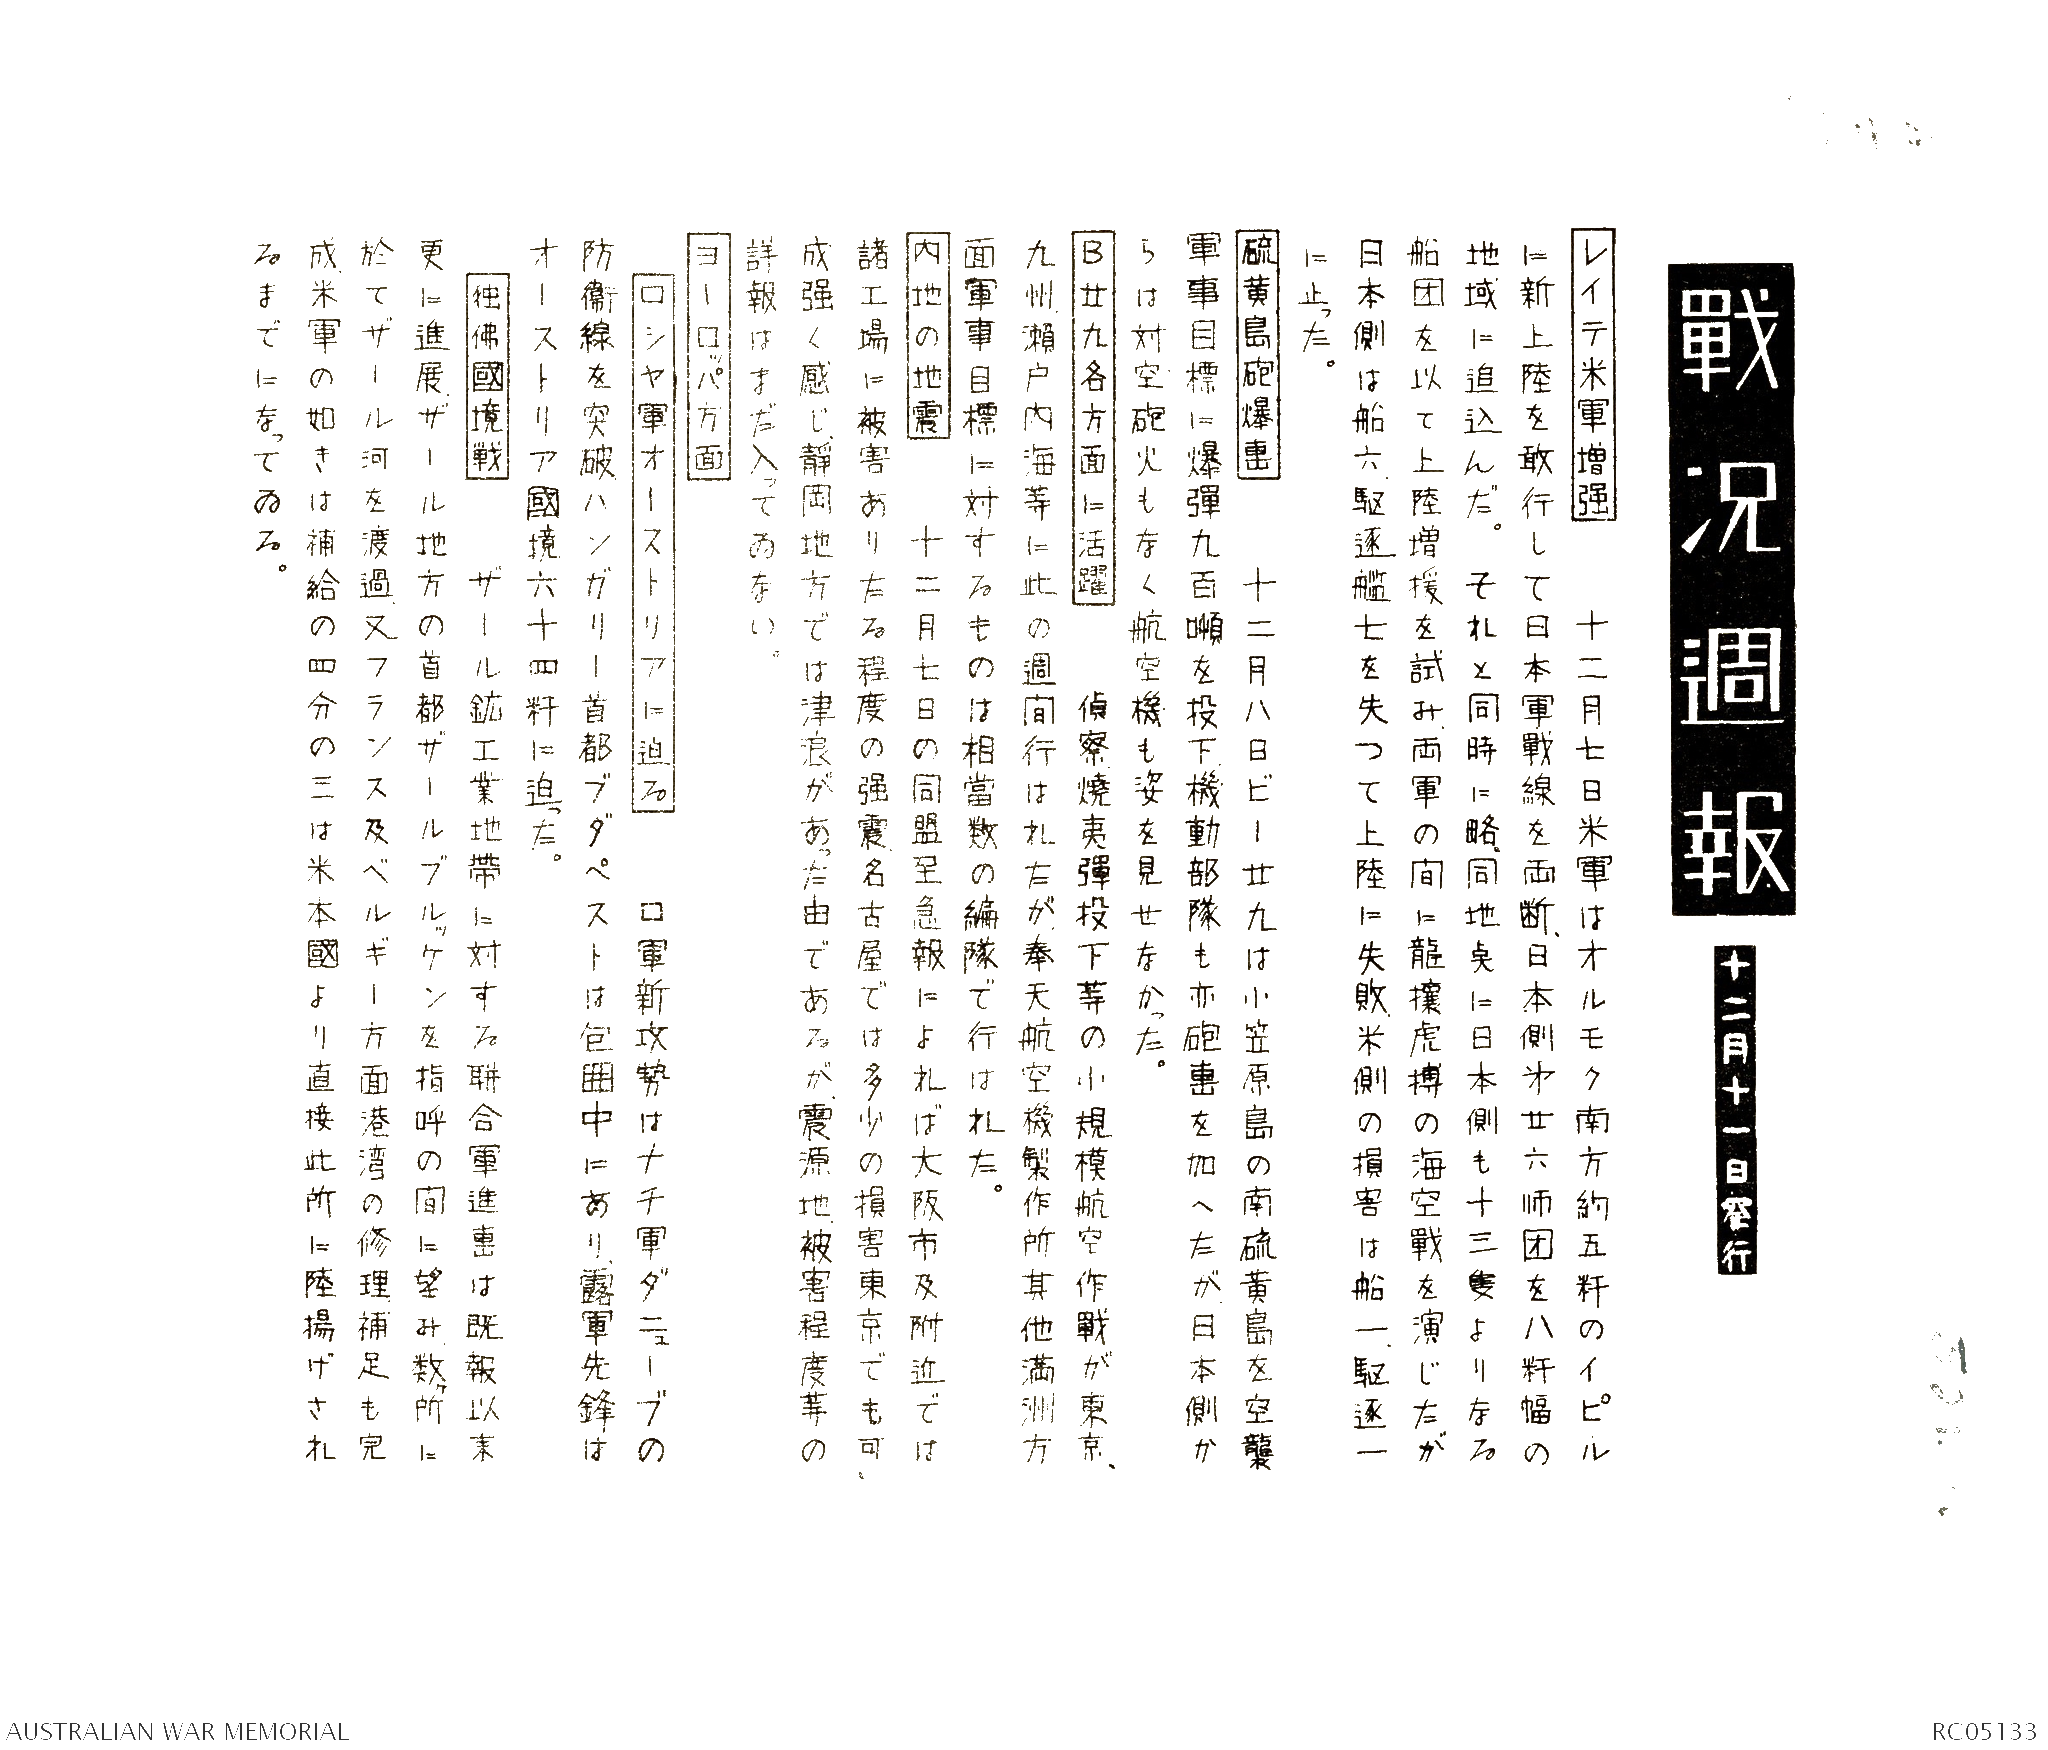 戰況週報
十二月十一日発行
レイテ米軍増强 十二月七日米軍はオルモク南方約五粁のイピル
に新上陸を敢行して日本軍戰線を両断、日本側㐧廿六师团を八粁幅の
地域に追込んだ。それと同時に略〻同地奌に日本側も十三隻よりなる
船团を以て上陸増援を試み、両軍の间に龍攘虎搏の海空戰を演じたが
日本側は船六、駆逐艦七を失つて上陸に失敗、米側の損害は船一、駆逐一
に止った。
硫黄島砲爆擊 十二月八日ビー廿九は小笠原島の南硫黄島を空襲
軍事目標に爆彈九百噸を投下、機動部隊も亦砲擊を加へたが、日本側か
らは対空砲火もなく航空機も姿を見せなかった。
B廿九各方面に活躍 偵察、燒夷彈投下等の小規模航空作戰が東京、
九州、瀨户内海等に此の週间行はれたが、奉天航空機製作所其他満洲方
面軍事目標に対するものは相當数の編隊で行はれた。
内地の地震 十二月七日の同盟至急報によれば大阪市及附近では
諸工場に被害ありたる程度の强震、名古屋では多少の損害、東京でも可、
成强く感じ、靜岡地方では津浪があった由であるが、震源地、被害程度等の
詳報はまだ入ってゐない。
ヨーロッパ方面
ロシヤ軍オーストリアに迫る ロ軍新攻勢はナチ軍ダニューブの
防衞線を突破、ハンガリー首都ブダペストは包囲中にあり、露軍先鋒は
オーストリア國境六十四粁に迫った。
独佛國境戦 ザール鉱工業地帶に対する聯合軍進擊は既報以来
更に進展、ザール地方の首都ザールブルッケンを指呼の间に望み、数ヶ所に
於てザール河を渡過、又フランス及ベルギー方面港湾の修理、補足も完
成、米軍の如きは補給の四分の三は米本國より直接此所に陸揚げされ
るまでになってゐる。
AUSTRALIAN WAR MEMORIAL
RC05133